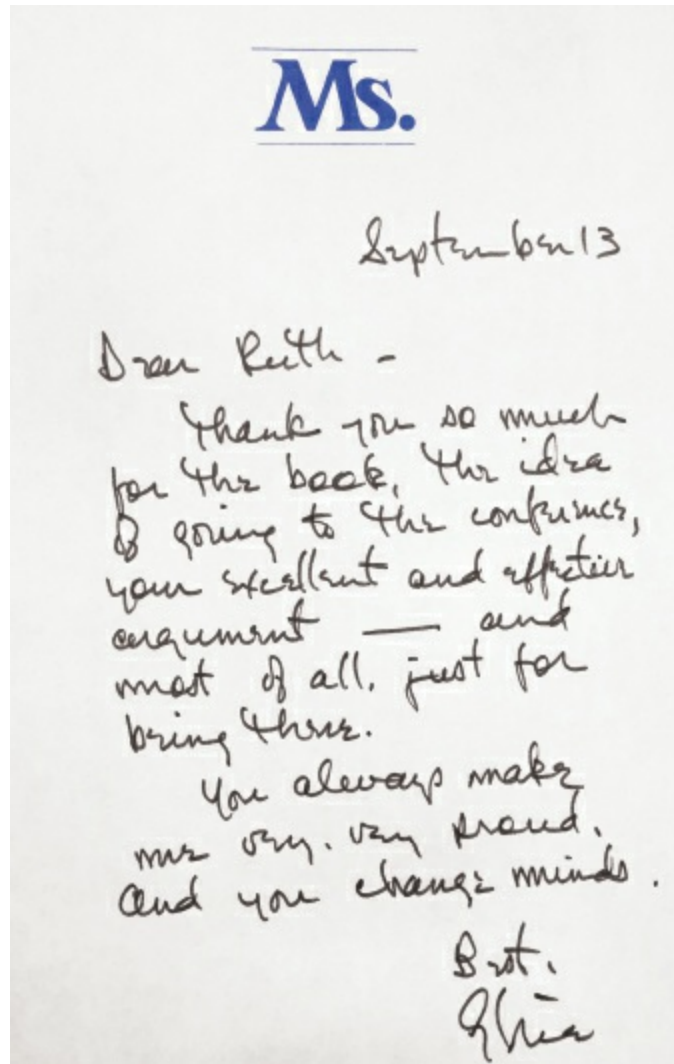 Ms.
September 13
Dear Ruth -
Thank you so much
for the book, the idea
of going to the conference,
your excellent and effective
argument — and
most of all, just for
being there.
You always make
me very, very proud.
And you change minds.
Best,
Gloria